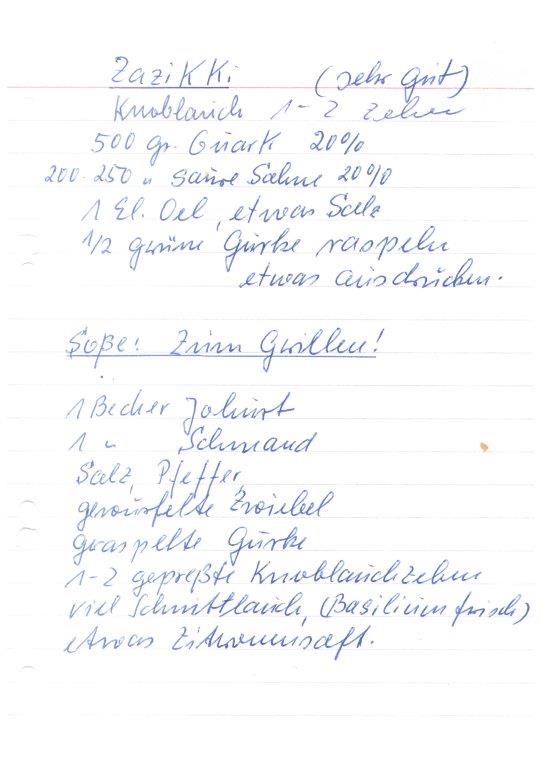 Zazikki (sehr gut)
Knoblauch 1-2 Zehen
500 gr. Quark 20%
200-250 " saure Sahne 20%
1 El. Oel, etwas Salz
1/2 grüne Gurke raspeln
etwas ausdrücken.
Soße! Zum Grillen!
1 Becher Johurt
1 " Schmand
Salz, Pfeffer,
gewürfelte Zwiebel
graspelte Gurke
1-2 gepreßte Knoblauchzehen
viel Schnittlauch, (Basilicum frisch)
etwas Zitronensaft.